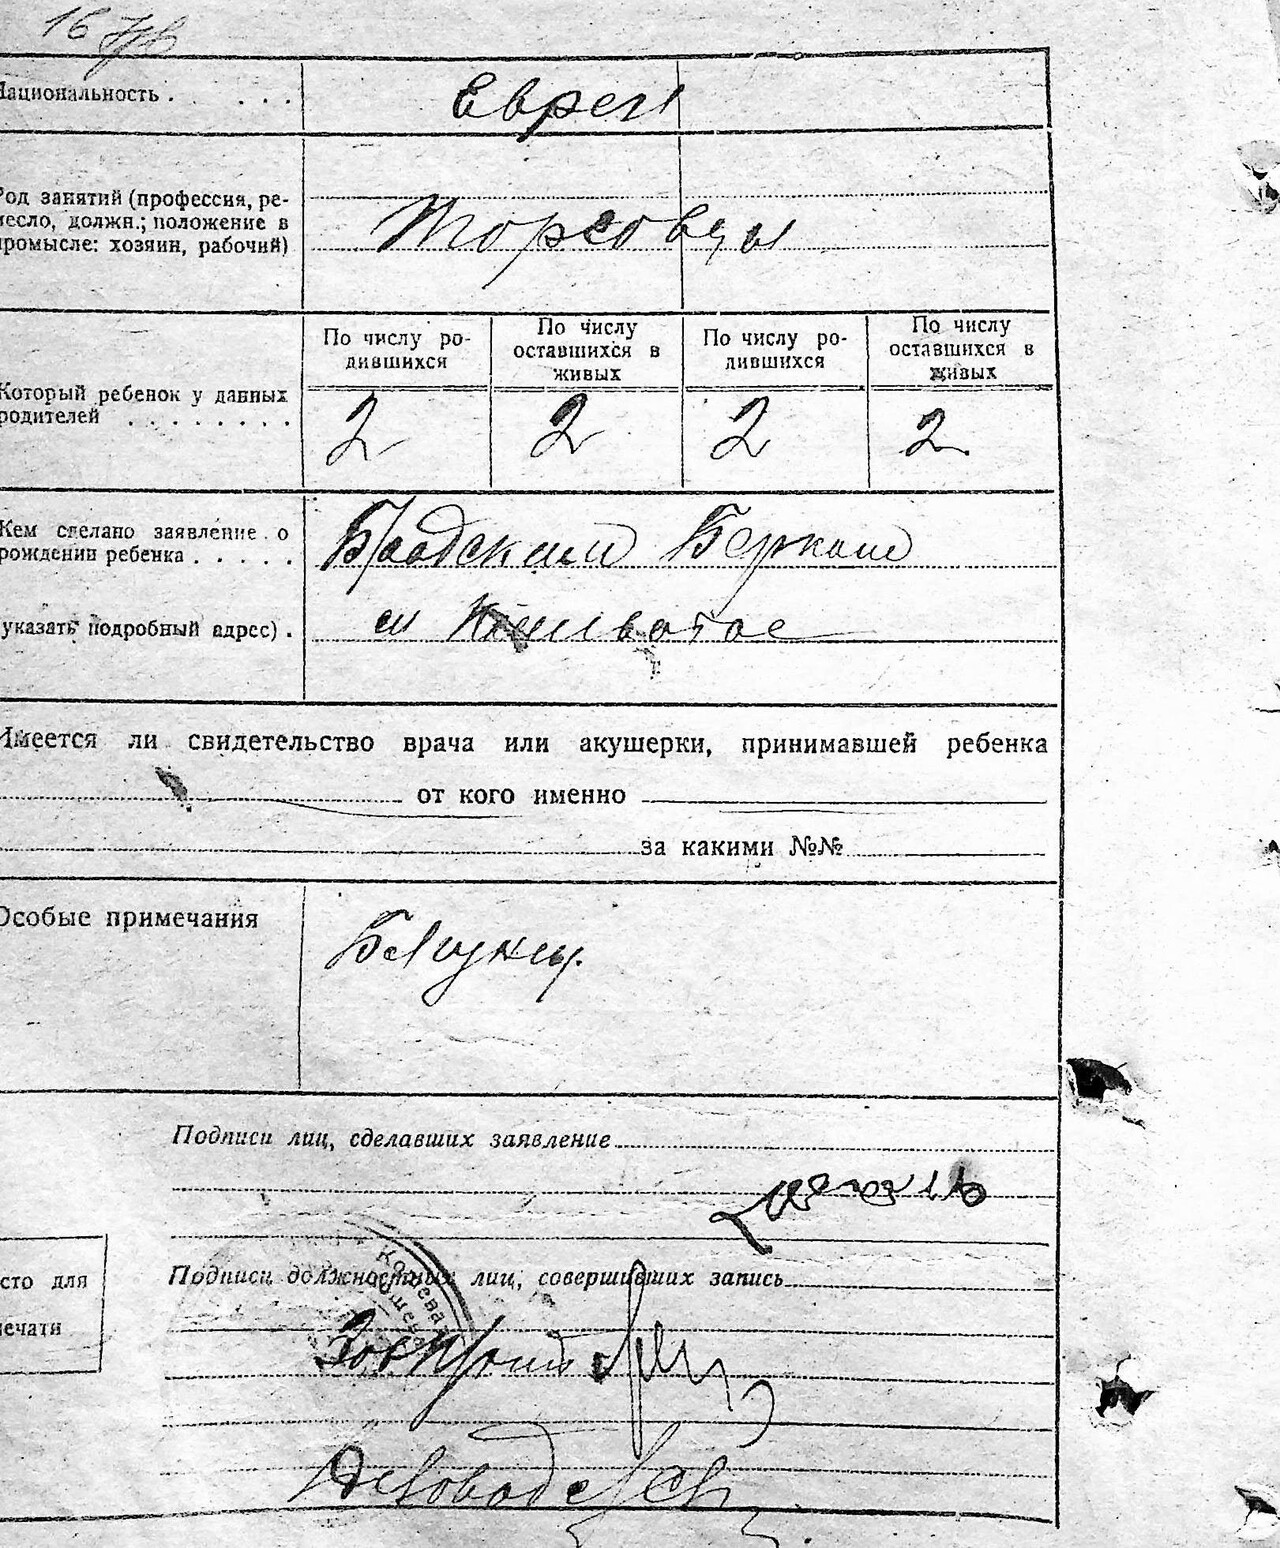 16
Национальность . . . . .
Евреи
Род занятий (профессия, ре-
месло, должн.; положение в
промысле: хозяин, рабочий)
Торговцы
Который ребенок у данных
родителей . . . . . . . .
По числу ро-
дившихся
По числу
оставшихся в
живых
По числу ро-
дившихся
По числу
оставшихся в
живых
2 2 2 2
Кем сделано заявление о
рождении ребенка . . . . .
(указать подробный адрес) .
Бродским Берком
м
Имеется ли свидетельство врача или акушерки, принимавшей ребенка
от кого именно
за какими №№
Особые примечания
Подписи лиц, сделавших заявление
Место для
печати
Подписи должностных лиц, совершивших запись
Деловод